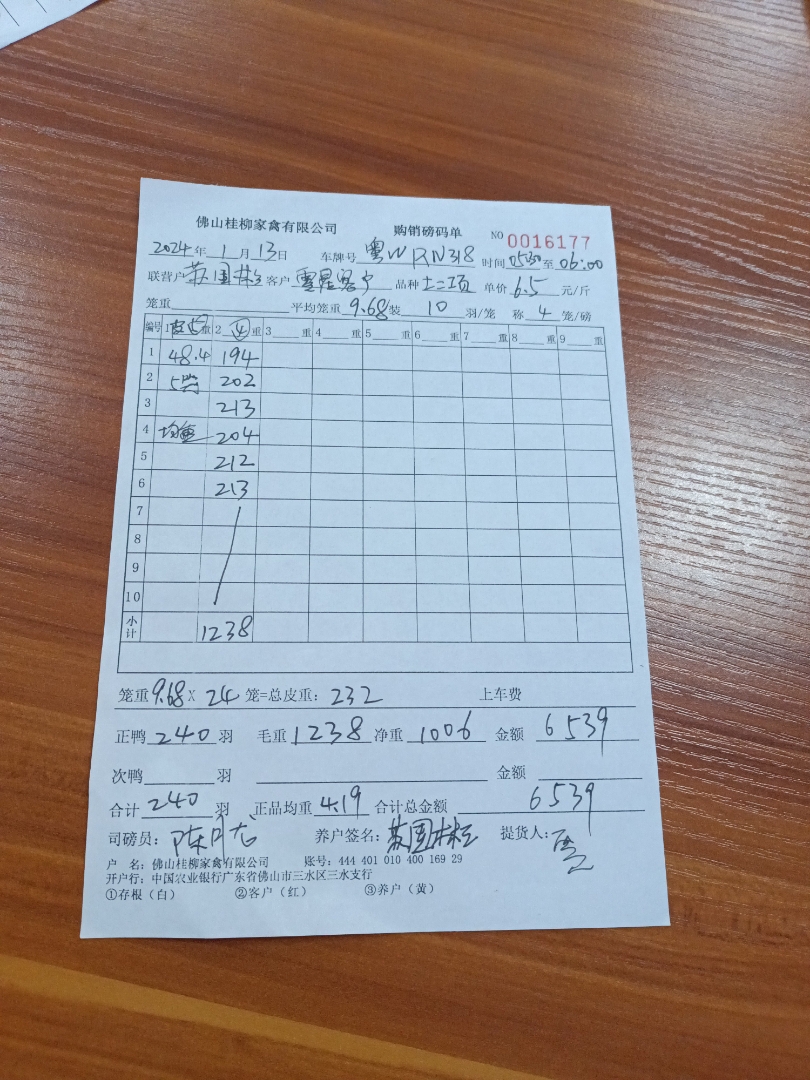 佛山桂柳家禽有限公司 购销磅码单 NO 0016177
2024年1月13日 车牌号 粤W RN318 时间 0530至06:00
联营户 客户 品种 单价 6.5 元/斤
笼重 平均笼重 9.68 装 10 羽/笼 称 4 笼/磅
编号 1 重 2 ④ 重 3 重 4 重 5 重 6 重 7 重 8 重 9 重
1 48.4 194
2 202
3 213
4 均重 204
5 212
6 213
7
8
9
10
小计 1238
笼重 9.68 X 24 笼=总皮重: 232 上车费
正鸭 240 羽 毛重 1238 净重 1006 金额 6539
次鸭 羽 金额
合计 240 羽 正品均重 4.19 合计总金额 6539
司磅员: 养户签名: 提货人:
户 名: 佛山桂柳家禽有限公司 账号: 444 401 010 400 169 29
开户行: 中国农业银行广东省佛山市三水区三水支行
①存根（白） ②客户（红） ③养户（黄）